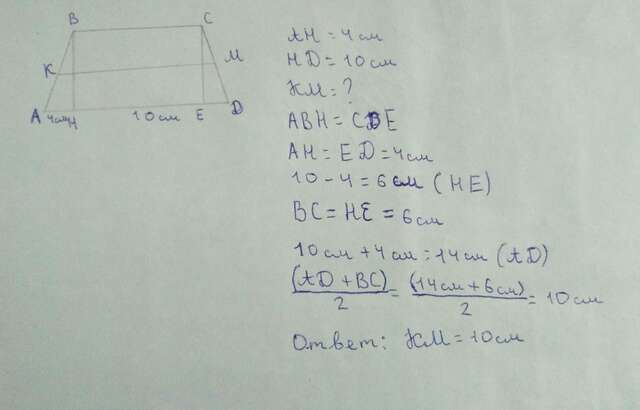 B
C
K
M
A 4см H
10см
E
D
AH = 4см
HD = 10см
KM = ?
ABH = CDE
AH = ED = 4см
10 - 4 = 6см (HE)
BC = HE = 6см
10см + 4см = 14см (AD)
(AD + BC)/2 = (14см + 6см)/2 = 10см
Ответ: KM = 10см